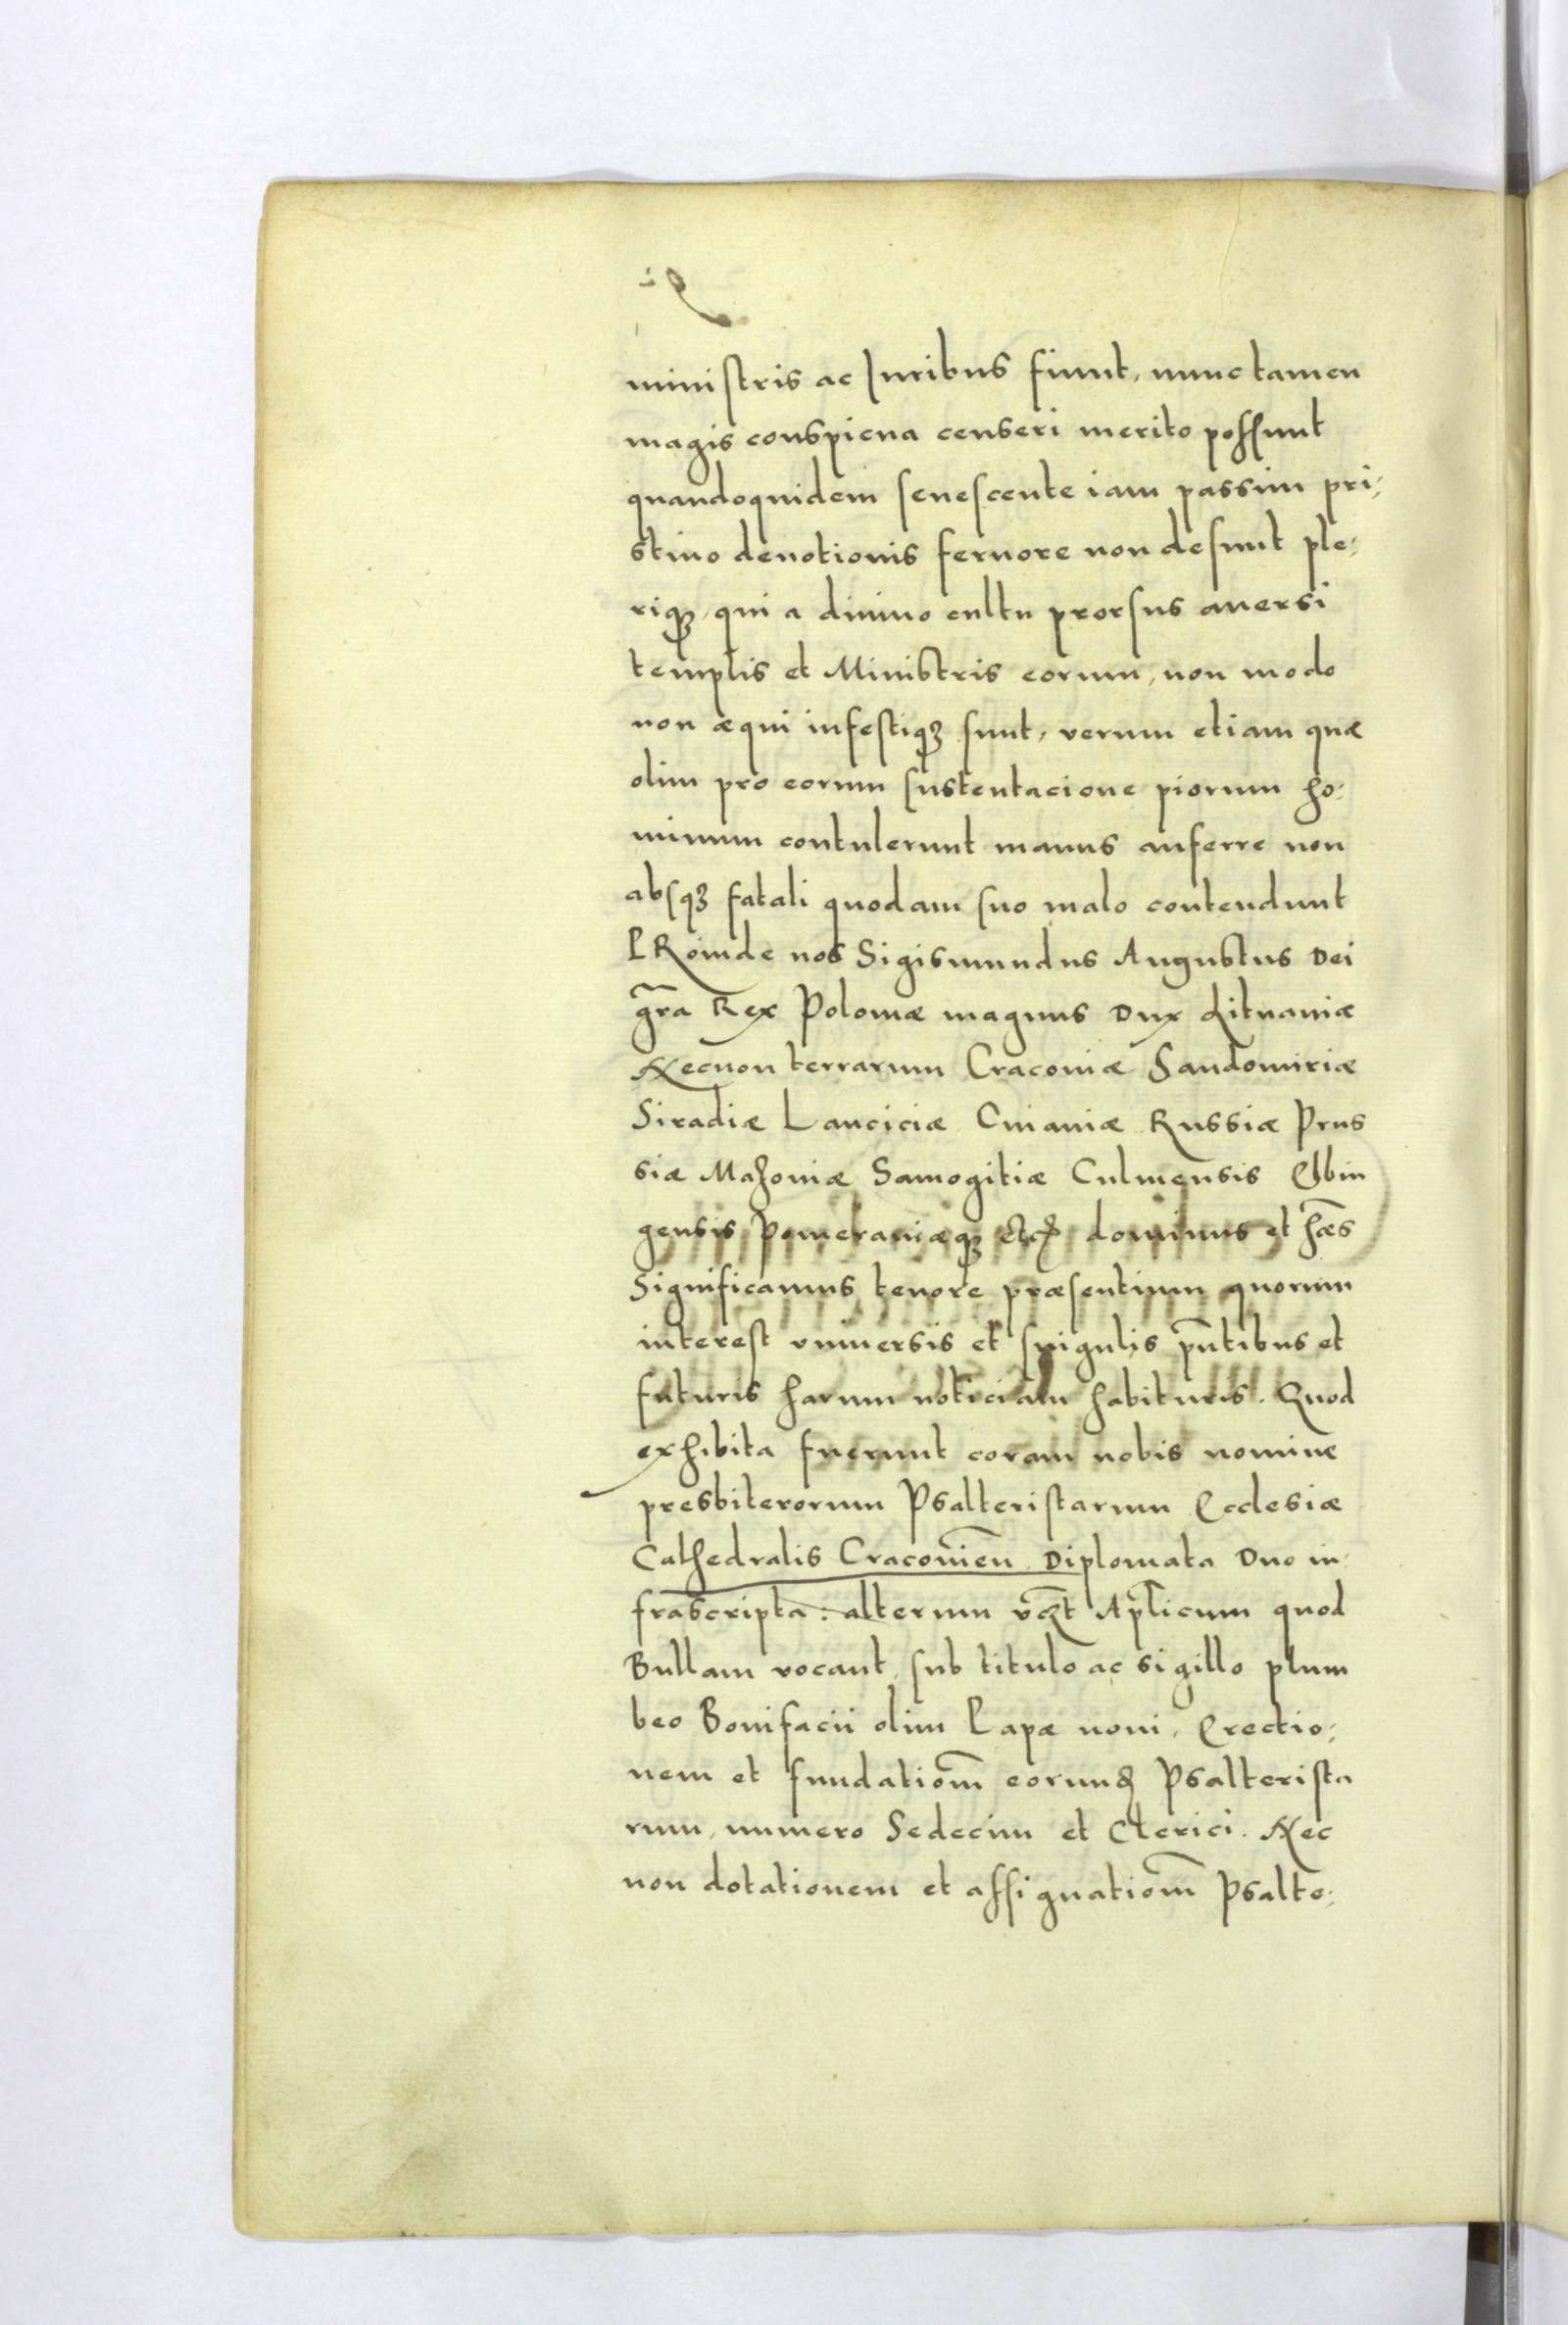 ministris ac Iuribus fiunt, nunc tamen
magis conspicua censeri merito possunt
quandoquidem senescente iam passim pri:
stino deuotionis feruore non desunt ple:
riq3, qui a diuino cultu prorsus auersi
templis et Ministris eorum, non modo
non æqui infestiq3 sunt, verum etiam quæ
olim pro eorum sustentacione piorum ho:
minum contulerunt manus auferre non
absq3 fatali quodam suo malo contendunt
PRoinde nos Sigismundus Augustus Dei
gr̃a Rex Poloniæ magnus Dux Lituaniæ
Necnon terrarum Cracouiæ Sandomiriæ
Siradiæ Lanciciæ Cuiauiæ Russiæ Prus
siæ Mazouiæ Samogitiæ Culmensis Elbin
gensis Pomeraniæq3 dominus et hæ̃s
Significamus tenore præsentium quorum
interest vniuersis et singulis pñtibus et
futuris harum noticiam habituris. Quod
exhibita fuerunt coram nobis nomine
presbiterorum Psalteristarum Ecclesiæ
Cathedralis Cracouień Diplomata Duo in:
frascripta: alterum vcz̃t Apl̃icum quod
Bullam vocant, sub titulo ac sigillo plum
beo Bonifacii olim Papæ noni, Erectio:
nem et fundatiom̃ eorund̃ Psalterista
rum, numero Sedecim et Clerici. Nec
non dotationem et assignatiom̃ Psalte: